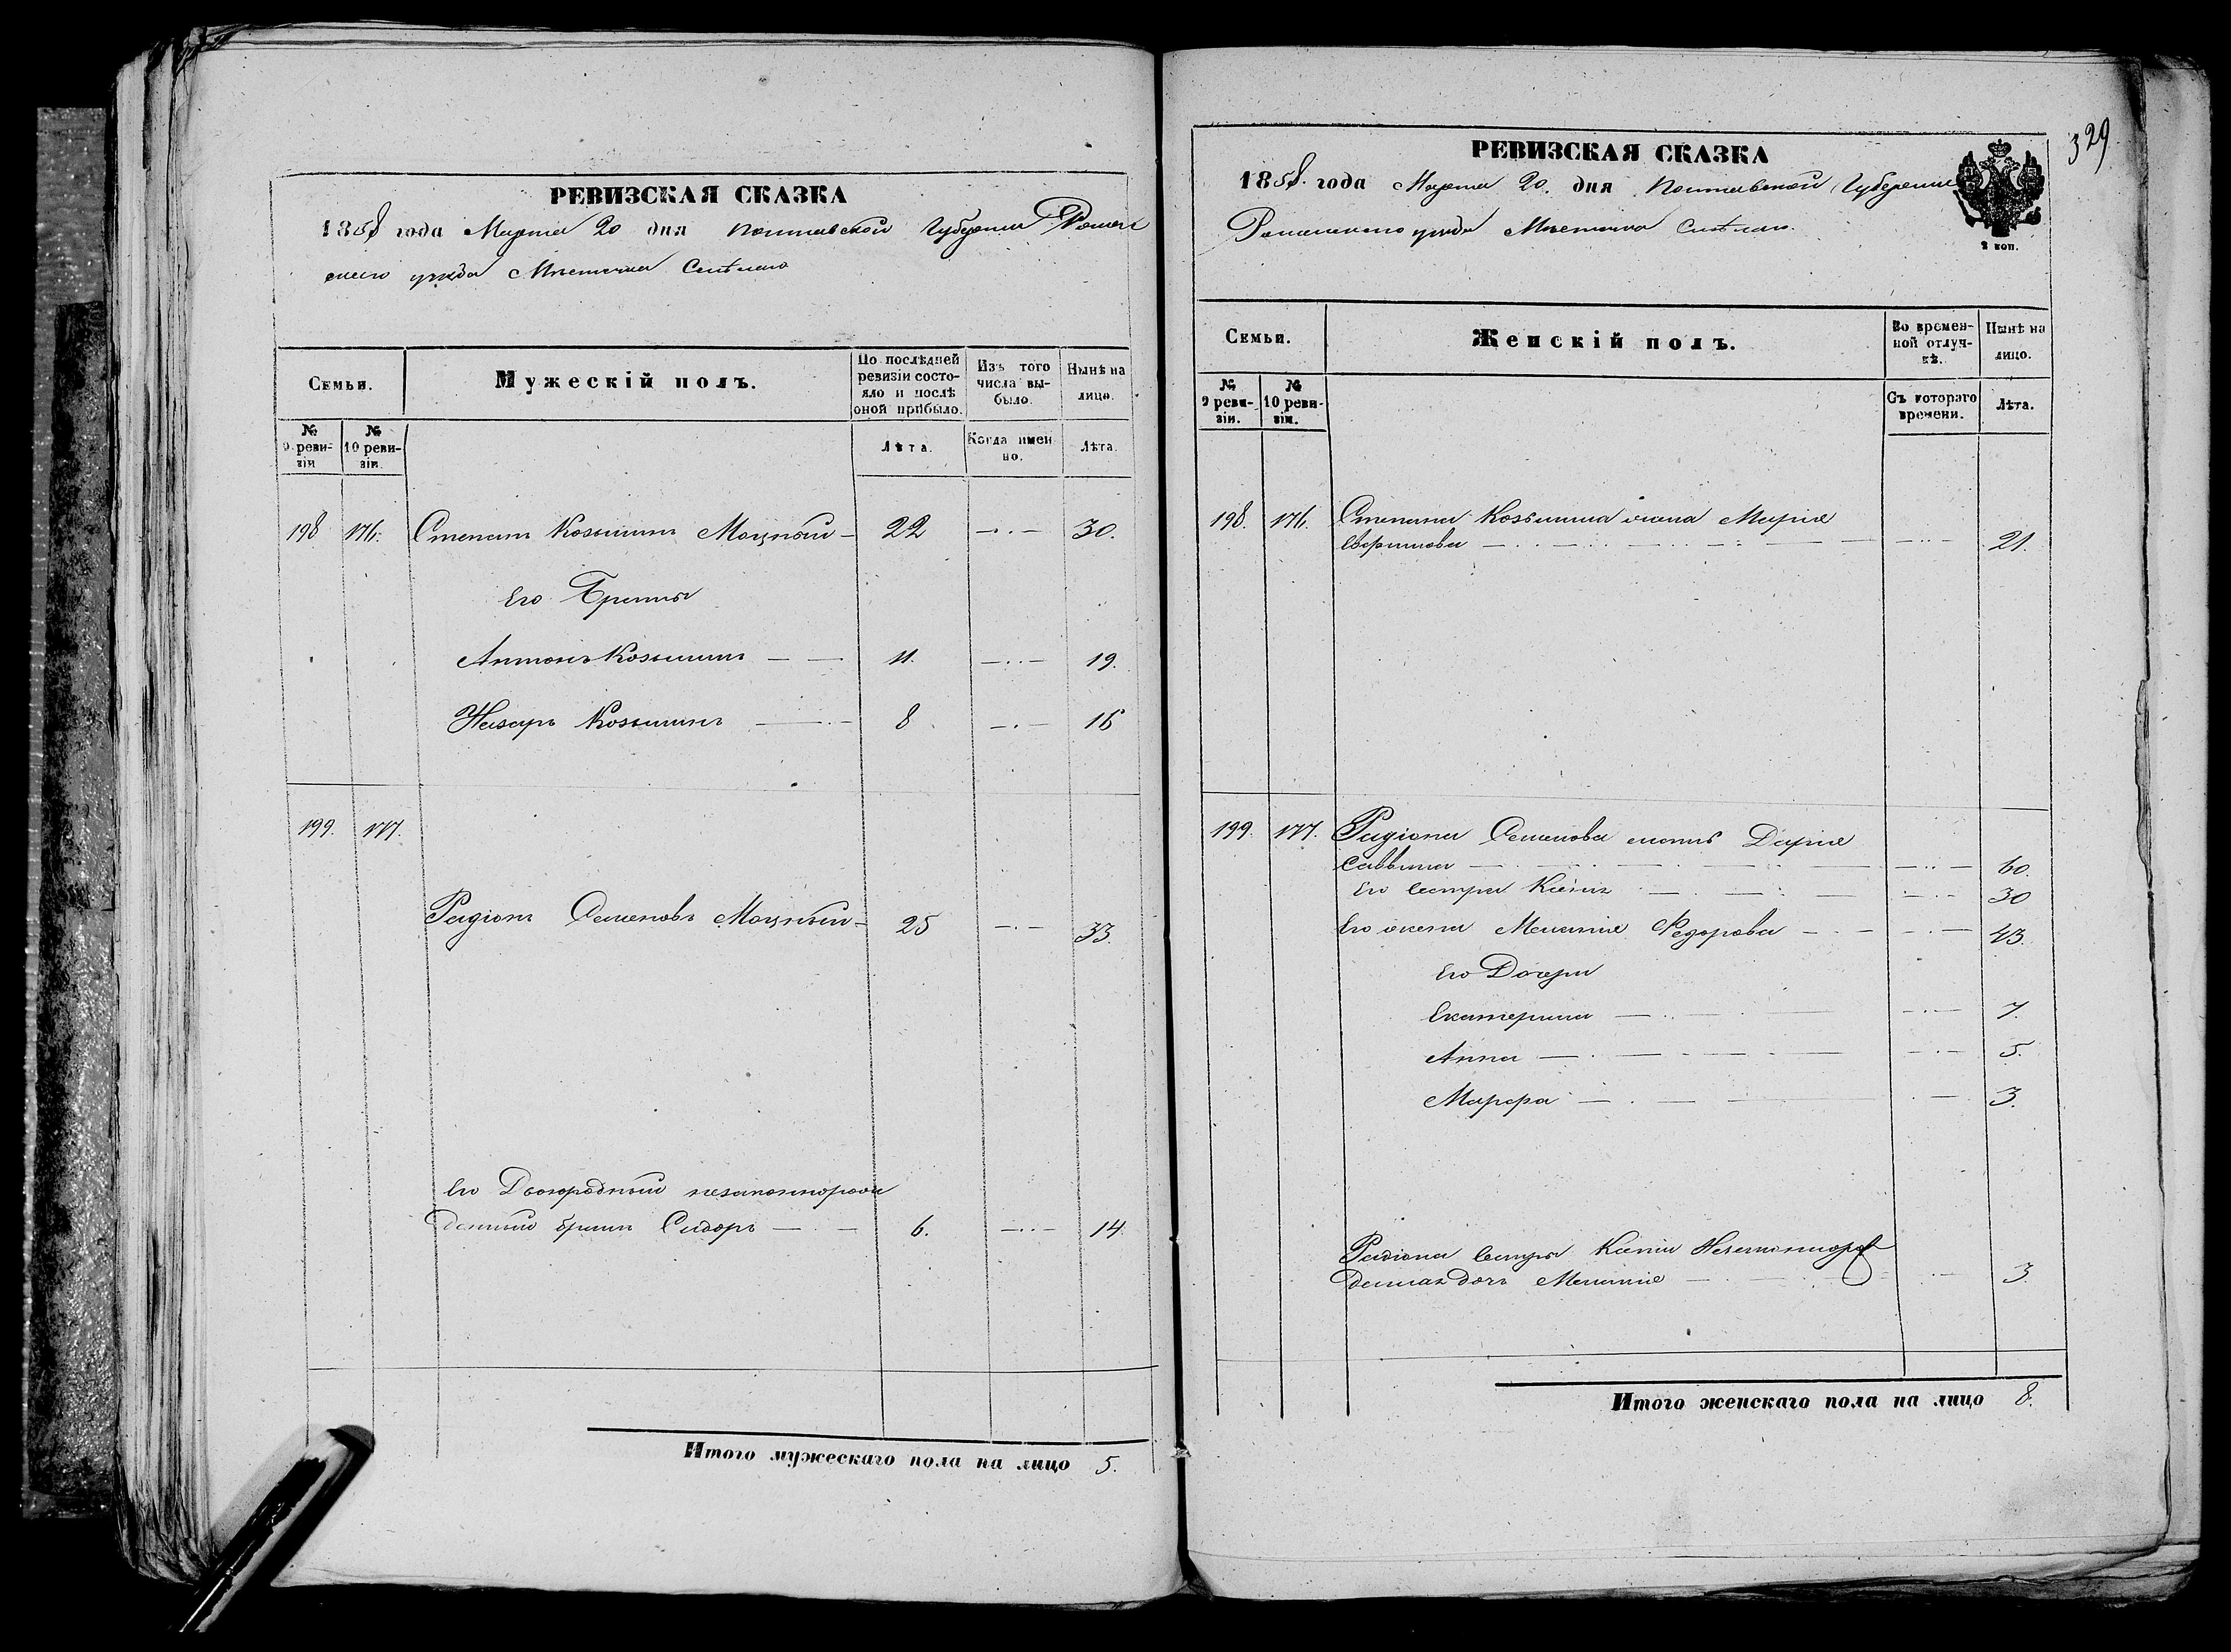 РЕВИЗСКАЯ СКАЗКА
1858 года Марта 20 дня Полтавской Губернiи Ромен
скаго уѣзда Мѣстечка Смѣлаго
Семьи.
Мужескій полъ.
По послѣдней ревизіи состояло и послѣ оной прибыло.
Изъ того числа выбыло.
Нынѣ на лицо.
№ 9 ревизіи
№ 10 ревизіи.
Лѣта.
Когда именно.
Лѣта.
198 176. Степанъ Козьминъ Моцный 22 30.
Его Братья
Антонъ Козьминъ 11. 19.
Назаръ Козьминъ 8 16
199. 177.
Радіонъ Семеновъ Моцный 25 33.
Его Двоюродный незаконнорож
денный братъ Сидоръ 6. 14.
Итого мужескаго пола на лицо 5.
329
РЕВИЗСКАЯ СКАЗКА
1858. года Марта 20. дня Полтавской Губерніи
Роменскаго уѣзда Мѣстечка Смѣлаго.
2 коп.
Семьи.
Женскій полъ.
Во временной отлучкѣ.
Нынѣ на лицо.
№ 9 ревизіи.
№ 10 ревизіи.
Съ котораго времени.
Лѣта.
198. 176. Степана Козьмина жена Марія
Ефимова 21.
199. 177. Радіона Семенова мать Дарія
Саввина 60.
Его Сестра Ксенія 30
Его жена Меланія Федорова 43.
Его Дочери
Екатерина 7.
Анна 5.
Марфа 3.
Радіона Сестры Ксеніи Незаконнорож
денная дочь Меланія 3.
Итого женскаго пола на лицо 8.